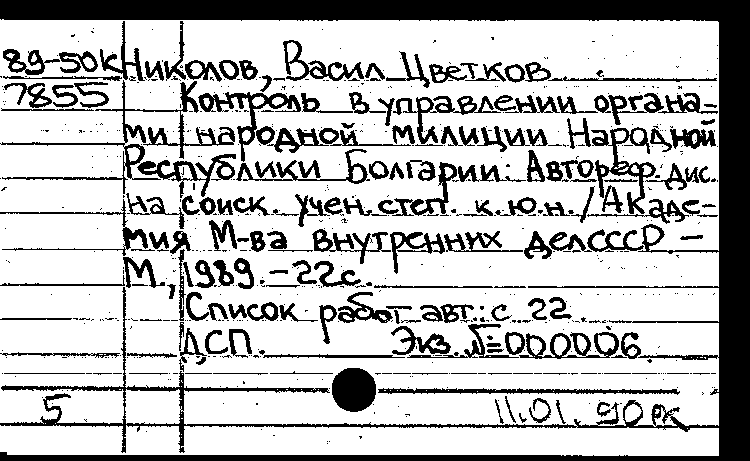 89-50к Николов, Васил Цветков
7855 Контроль в управлении органа-
ми народной милиции Народной
Республики Болгарии: Автореф. дис.
на соиск. учен. степ. к.ю.н. / Акаде-
мия М-ва внутренних дел СССР. –
М., 1989. – 22 с.
Список работ авт.: с. 22.
ДСП. Экз. №=000006
5 11.01.90 РК